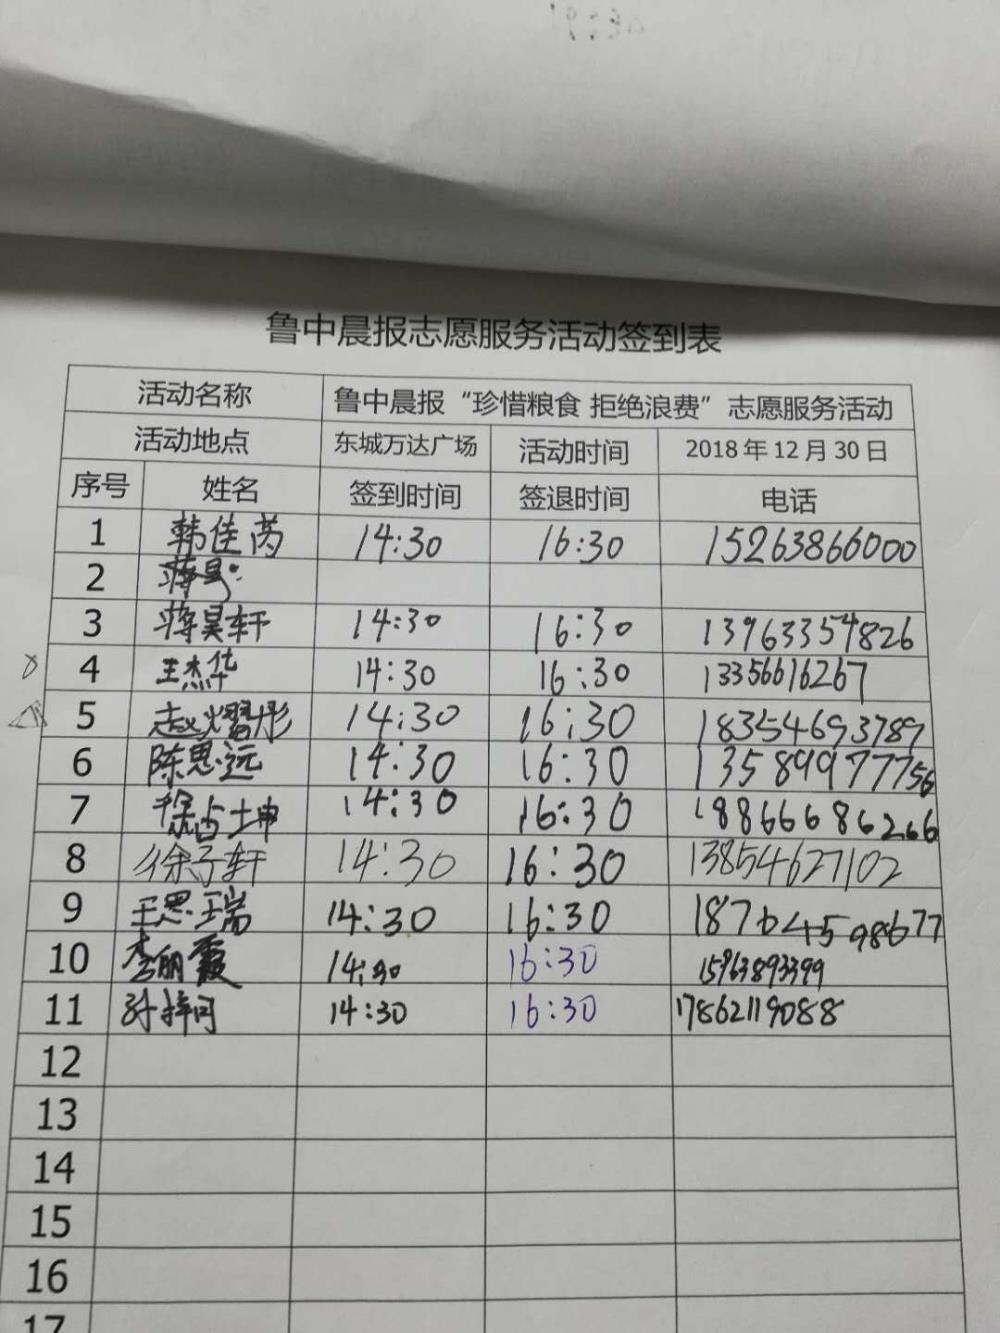 鲁中晨报志愿服务活动签到表
活动名称 鲁中晨报“珍惜粮食 拒绝浪费”志愿服务活动
活动地点 东城万达广场 活动时间 2018年12月30日
序号 姓名 签到时间 签退时间 电话
1 韩佳芮 14:30 16:30 15263866000
2
3 蒋昊轩 14:30 16:30 13963354826
4 王杰华 14:30 16:30 13356616267
5 赵熠彤 14:30 16:30 18354693789
6 陈思远 14:30 16:30 13589977756
7 14:30 16:30 18866686266
8 徐子轩 14:30 16:30 13854627102
9 王思瑞 14:30 16:30 18764598677
10 李丽霞 14:30 16:30 15963893399
11 14:30 16:30 17862119088
12
13
14
15
16
17